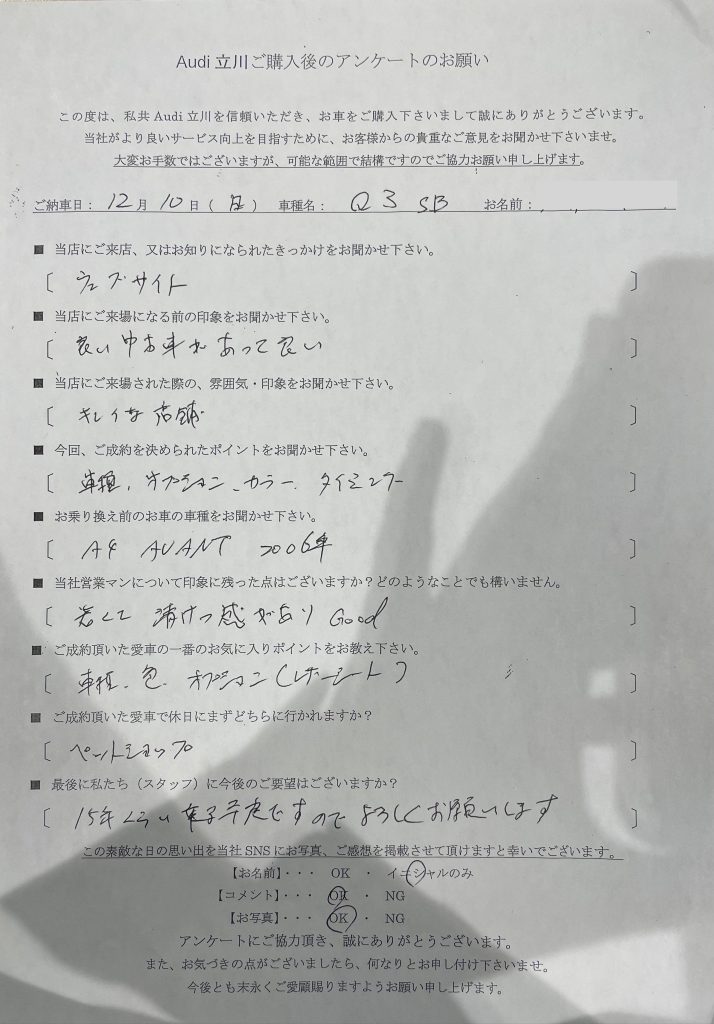 Audi 立川ご購入後のアンケートのお願い
この度は、私共 Audi 立川を信頼いただき、お車をご購入下さいまして誠にありがとうございます。
当社がより良いサービス向上を目指すために、お客様からの貴重なご意見をお聞かせ下さいませ。
大変お手数ではございますが、可能な範囲で結構ですのでご協力お願い申し上げます。
ご納車日： 12月 10日（日） 車種名： Q3 SB お名前：
■ 当店にご来店、又はお知りになられたきっかけをお聞かせ下さい。
〔 ウェブサイト 〕
■ 当店にご来場になる前の印象をお聞かせ下さい。
〔 良い中古車があって良い 〕
■ 当店にご来場された際の、雰囲気・印象をお聞かせ下さい。
〔 キレイな店舗 〕
■ 今回、ご成約を決められたポイントをお聞かせ下さい。
〔 車種、オプション、カラー、タイミング 〕
■ お乗り換え前のお車の車種をお聞かせ下さい。
〔 A4 AVANT 2006年 〕
■ 当社営業マンについて印象に残った点はございますか？どのようなことでも構いません。
〔 若くて 清けつ感があり Good 〕
■ ご成約頂いた愛車の一番のお気に入りポイントをお教え下さい。
〔 車種、色、オプション（レザーシート） 〕
■ ご成約頂いた愛車で休日にまずどちらに行かれますか？
〔 ペットショップ 〕
■ 最後に私たち（スタッフ）に今後のご要望はございますか？
〔 15年くらい乗る予定ですのでよろしくお願いします 〕
この素敵な日の思い出を当社 SNS にお写真、ご感想を掲載させて頂けますと幸いでございます。
【お名前】・・・ OK ・ イニシャルのみ
【コメント】・・・ OK ・ NG
【お写真】・・・ OK ・ NG
アンケートにご協力頂き、誠にありがとうございます。
また、お気づきの点がございましたら、何なりとお申し付け下さいませ。
今後とも末永くご愛顧賜りますようお願い申し上げます。